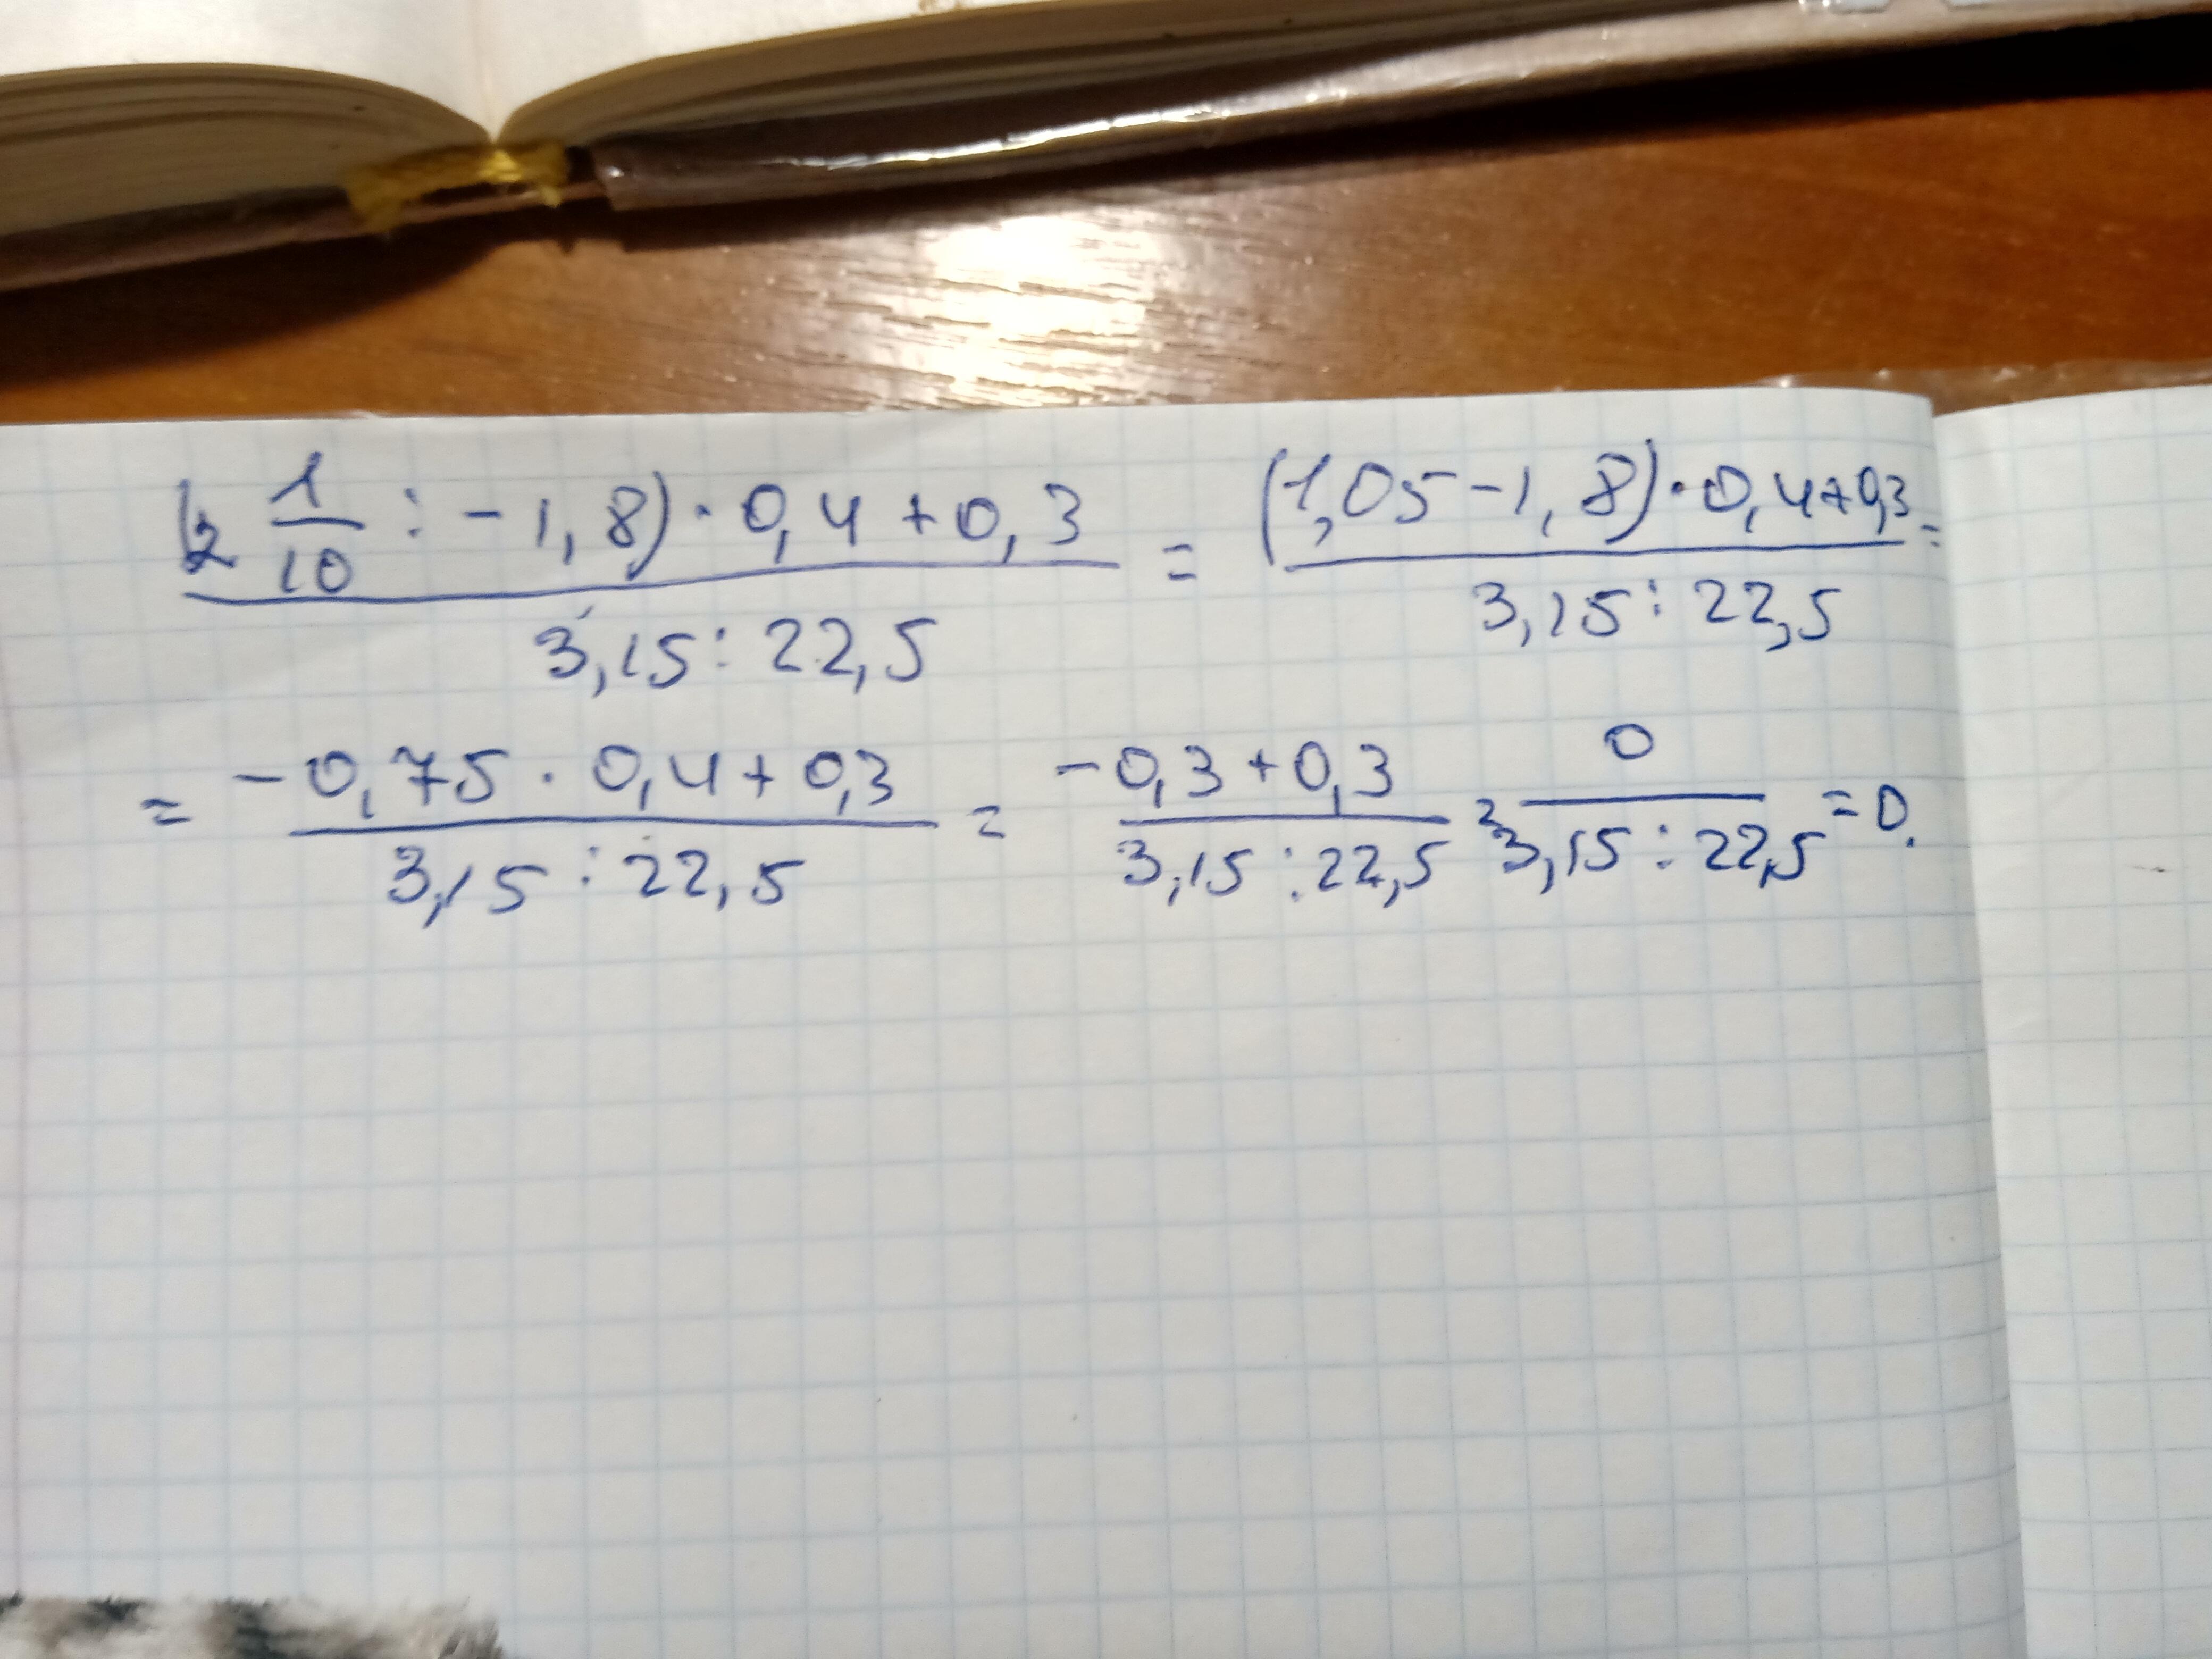 (2 1/10 : -1,8) · 0,4 + 0,3 / 3,15 : 22,5 = (1,05 - 1,8) · 0,4 + 0,3 / 3,15 : 22,5 =
= -0,75 · 0,4 + 0,3 / 3,15 : 22,5 = -0,3 + 0,3 / 3,15 : 22,5 = 0 / 3,15 : 22,5 = 0.